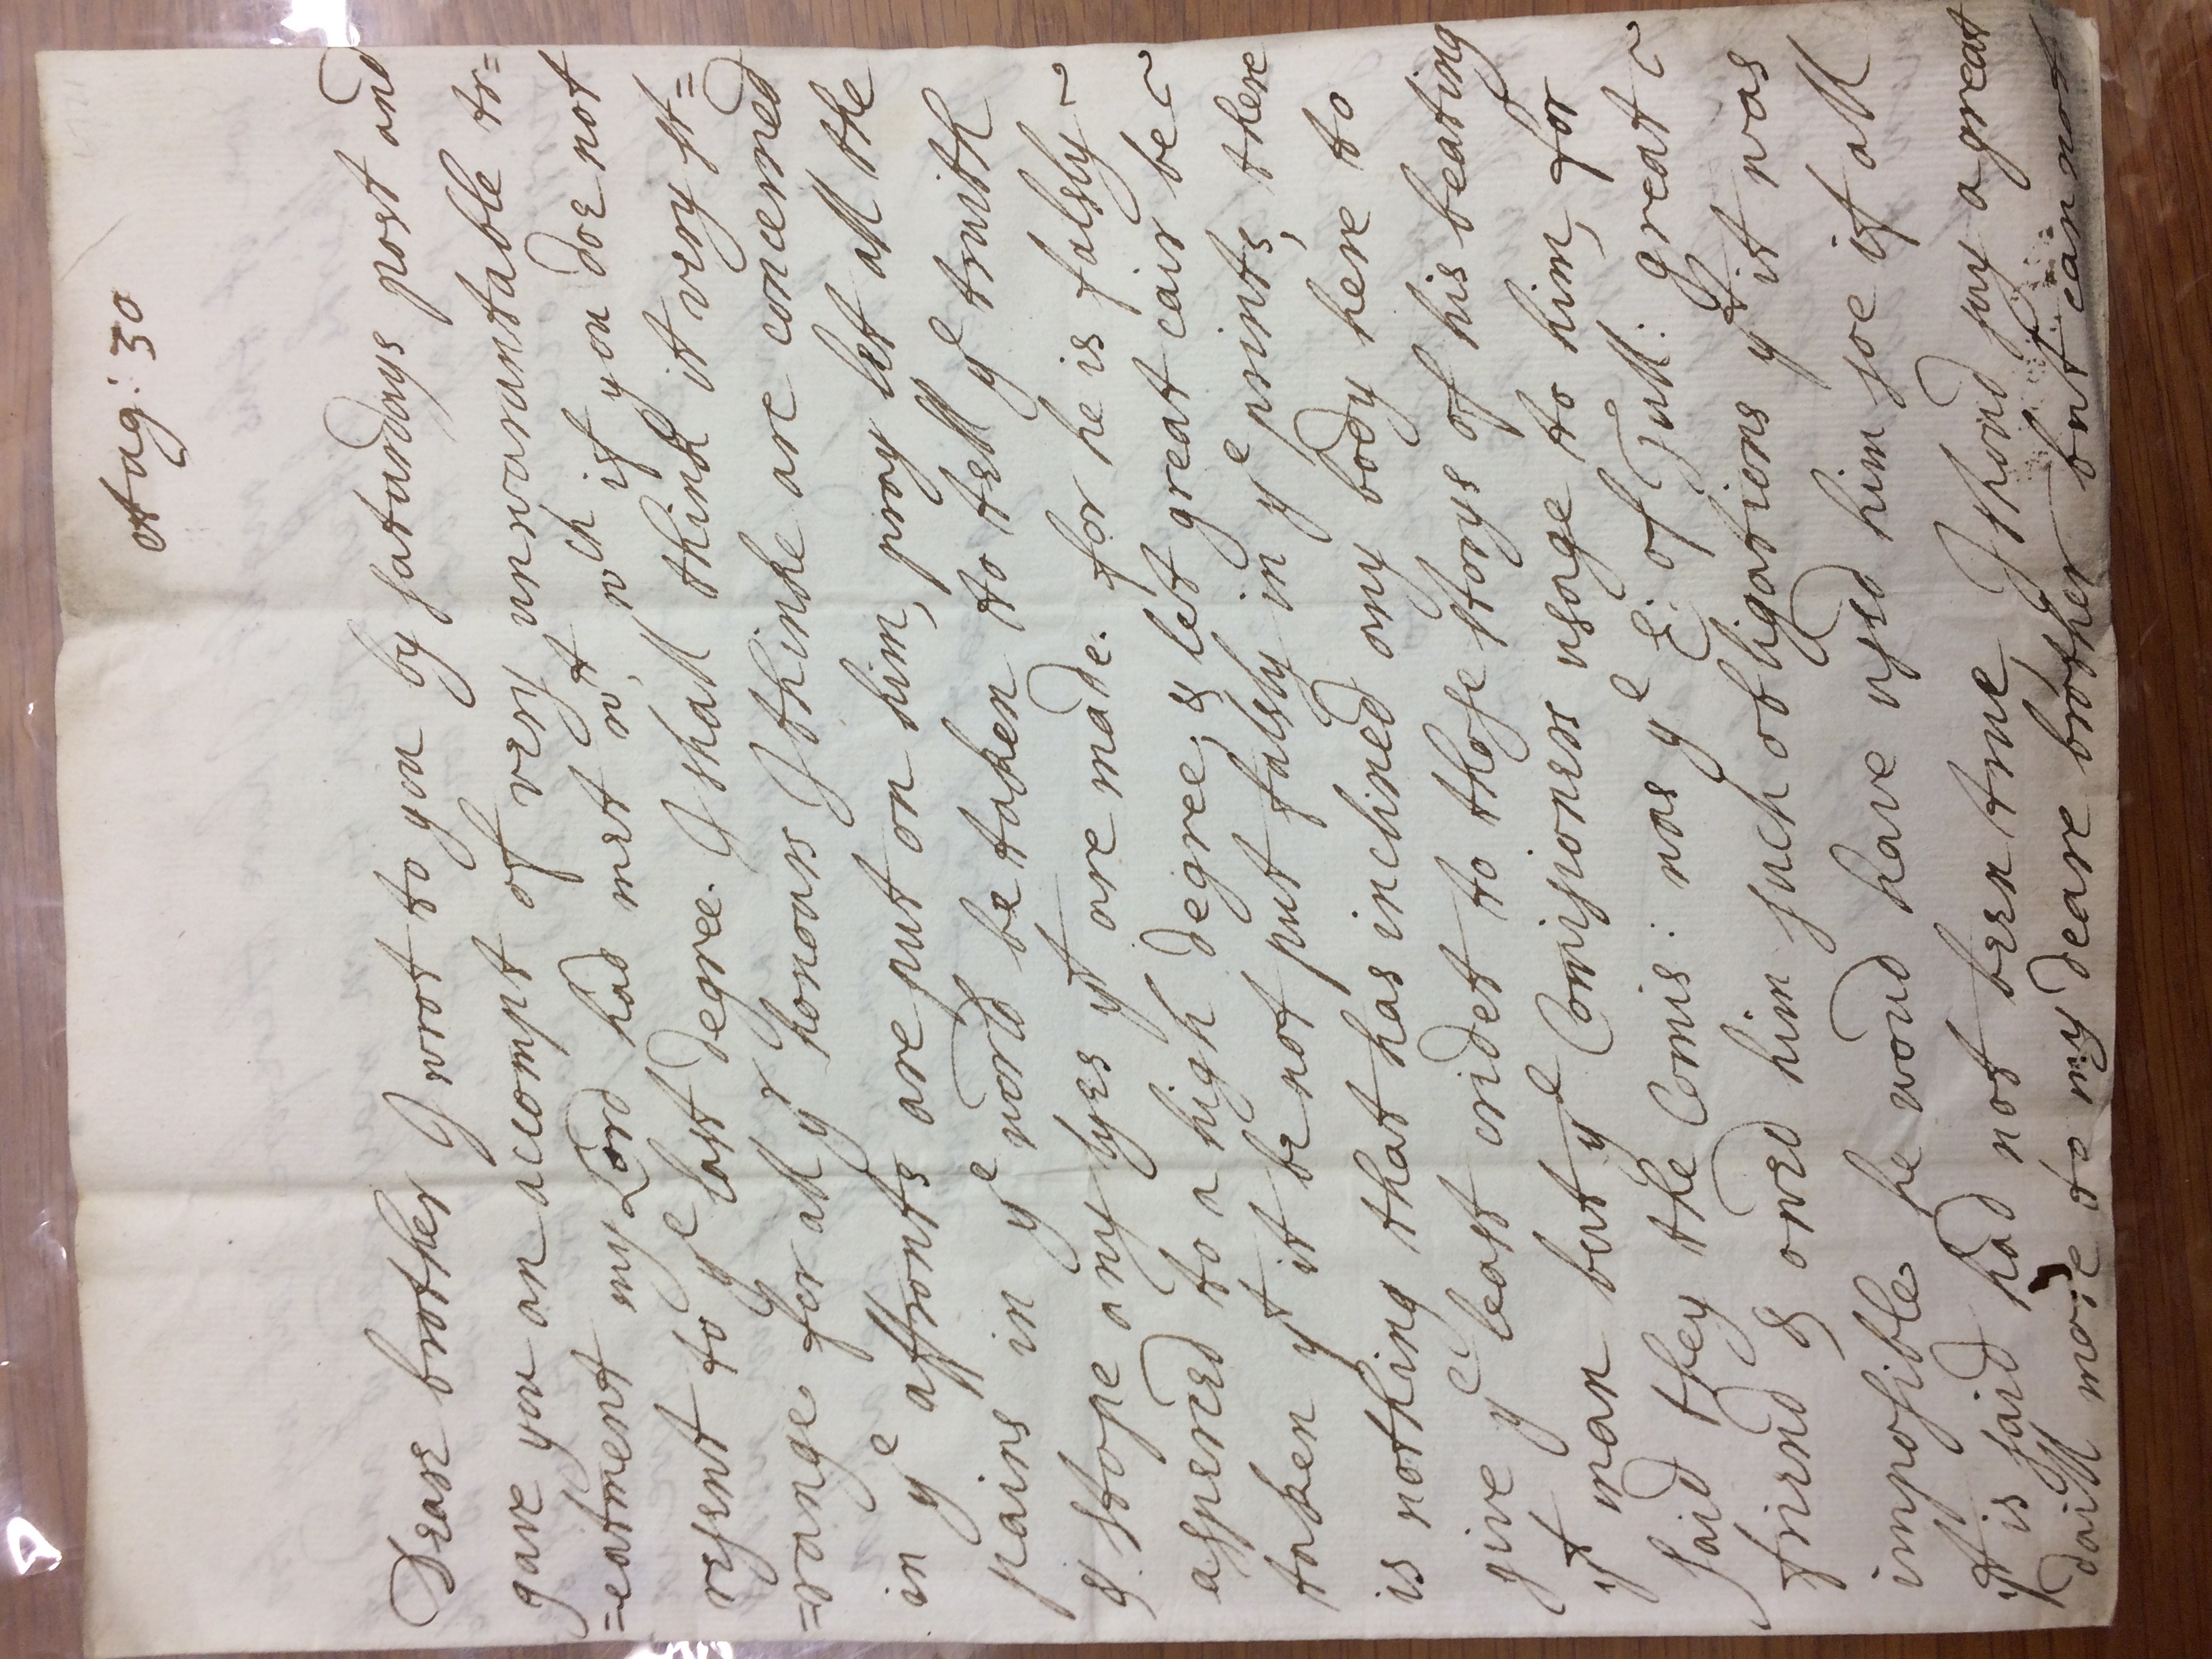 Aug: 30
Deare brother I wrot to you by saturdays post and
gave you an accompt of very unwarantable tr=
=eatment my Lord had met wt, wch if you doe not
resent to ye last degree. I shall think it very st=
=range for all yr honours I thinke are concerned
in ye affronts are put on him, pray let all the
pains in ye world be taken to tell ye truith
& stope any lyes yt are made. for he is falsly
asperced to a high degree, & let great cair be
taken yt it be not put falsly in ye prints, there
is nothing that has inclined any body here to
give ye least cridet to those storys of his beating
yt man but ye Comisioners usage to him, for
said they the Comis: was ye E: of Tull: great
friend & owed him such obligations yt it was
imposible he woud have used him soe if all
yt is said had not been true, I shoud say a great
daill more to my deare brother but can not